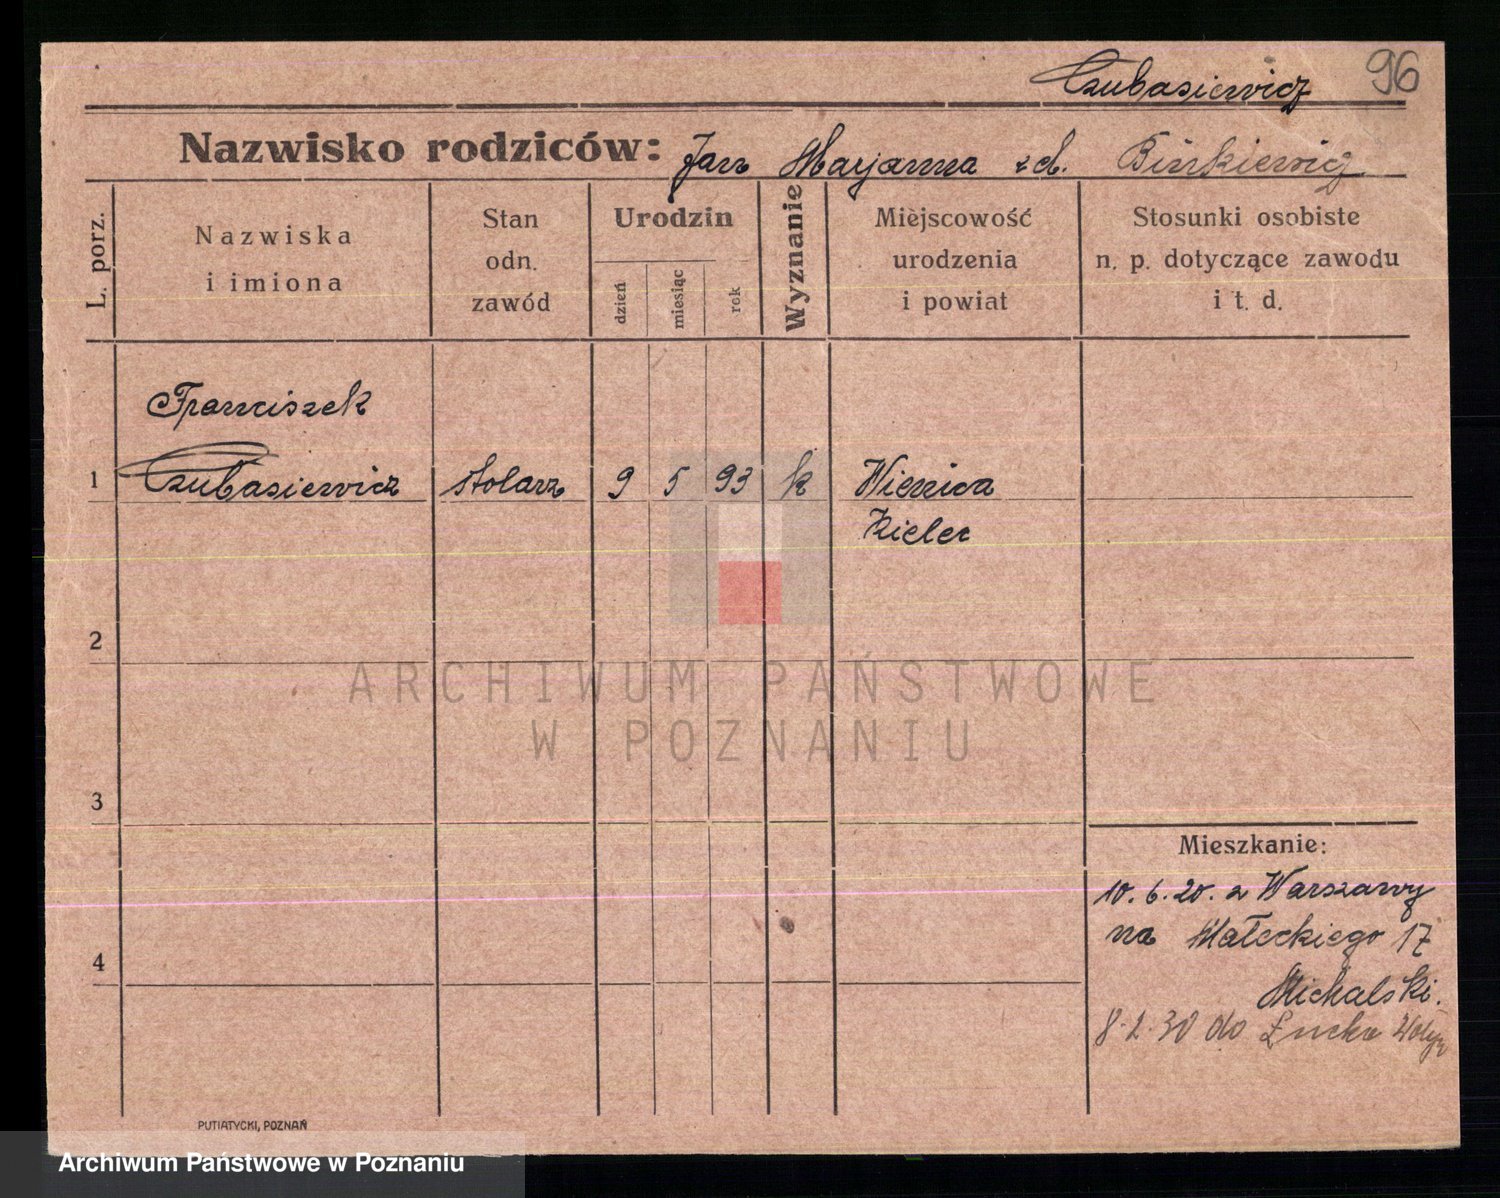 Czubasiewicz 96
Nazwisko rodziców: Jan Marjanna zd. Binkiewicz
L. porz.
Nazwiska
i imiona
Stan
odn.
zawód
Urodzin
dzień
miesiąc
rok
Wyznanie
Miejscowość
urodzenia
i powiat
Stosunki osobiste
n. p. dotyczące zawodu
i t. d.
Franciszek
1 Czubasiewicz stolarz 9 5 93 k
Kielec
2
ARCHIWUM PAŃSTWOWE
W POZNANIU
3
Mieszkanie:
10. 6. 20. z Warszawy
4 na Małeckiego 17
Michalski.
8.2.30 do Łucka Wołyń
PUTIATYCKI, POZNAŃ
Archiwum Państwowe w Poznaniu